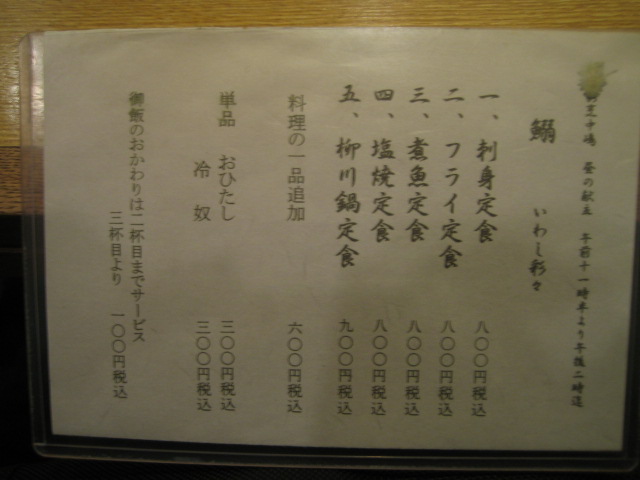 新宿中嶋 昼の献立 午前十一時半より午後二時迄
鰯 いわし彩々
一、刺身定食 八〇〇円税込
二、フライ定食 八〇〇円税込
三、煮魚定食 八〇〇円税込
四、塩焼定食 八〇〇円税込
五、柳川鍋定食 九〇〇円税込
料理の一品追加 六〇〇円税込
単品 おひたし 三〇〇円税込
冷奴 三〇〇円税込
御飯のおかわりは二杯目までサービス
三杯目より 一〇〇円税込